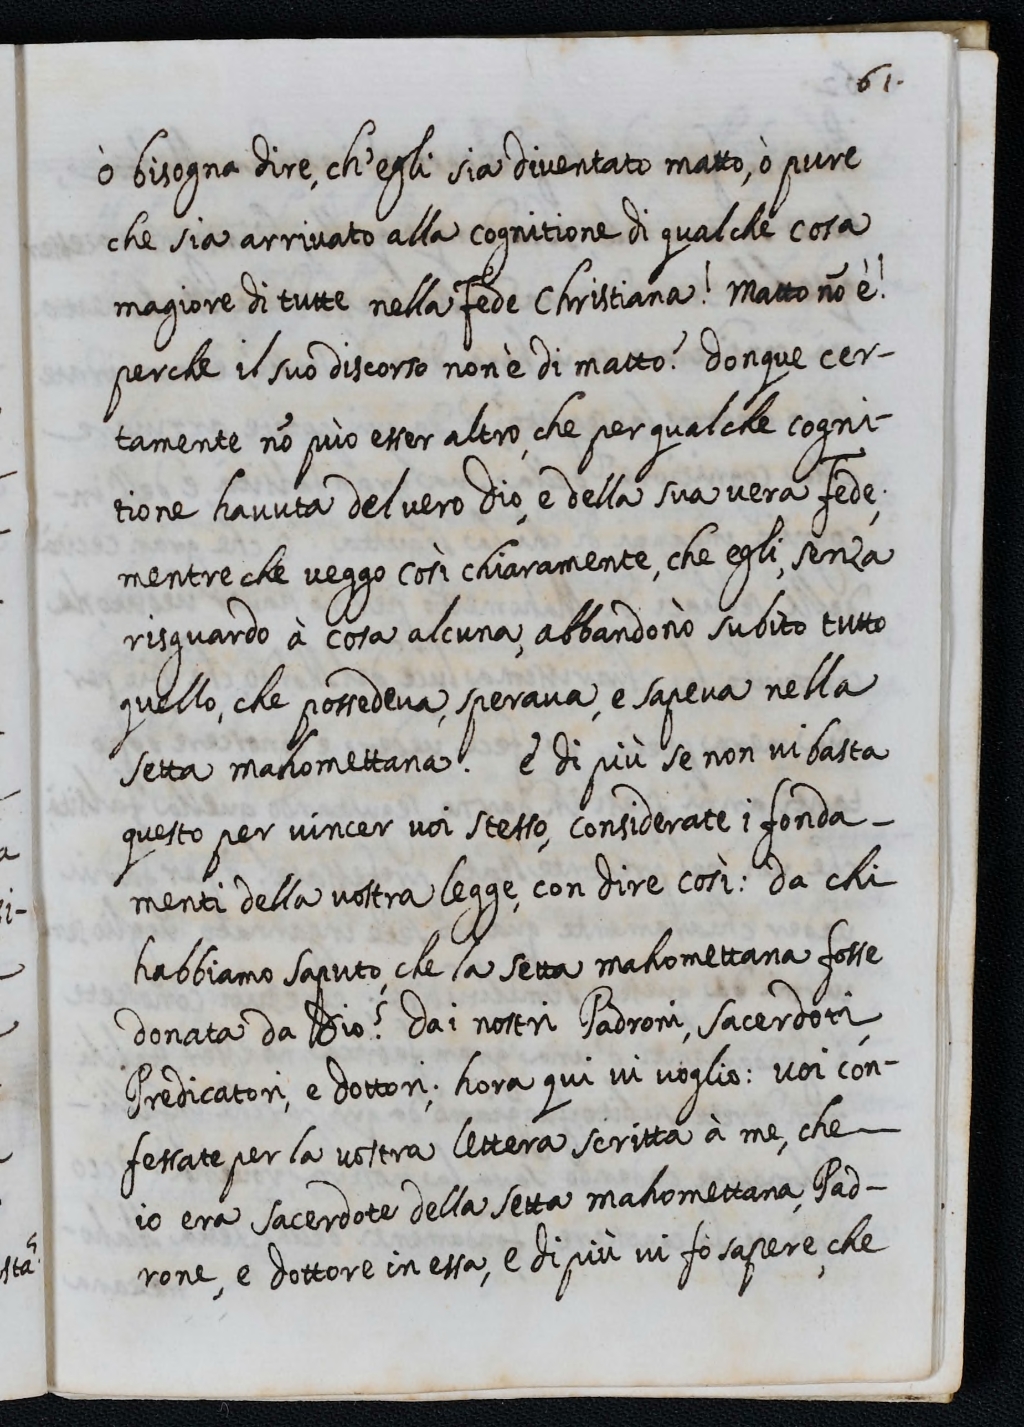 61.
ò bisogna dire, ch'egli sia diventato matto, ò pure
che sia arrivato alla cognitione di qualche cosa
magiore di tutte nella Fede Christiana! Matto nõ è!
perche il suo discorso non è di matto? donque cer-
tamente nõ può esser altro, che per qualche cogni-
tione havuta del vero Dio, e della sua vera Fede;
mentre che veggo così chiaramente, che egli, senza
risguardo à cosa alcuna, abbandonò subito tutto
quello, che possedeva, sperava, e sapeva nella
setta mahomettana. e di più se non vi basta
questo per vincer voi stesso, considerate i fonda-
menti della vostra legge, con dire così: da chi
habbiamo saputo, che la setta mahomettana fosse
donata da Dio? dai nostri Padroni, sacerdoti,
Predicatori, e dottori; hora qui vi voglio: voi con-
fessate per la vostra lettera scritta à me, che
io era sacerdote della setta mahomettana, Pad-
rone, e dottore in essa, e di più vi fò sapere, che